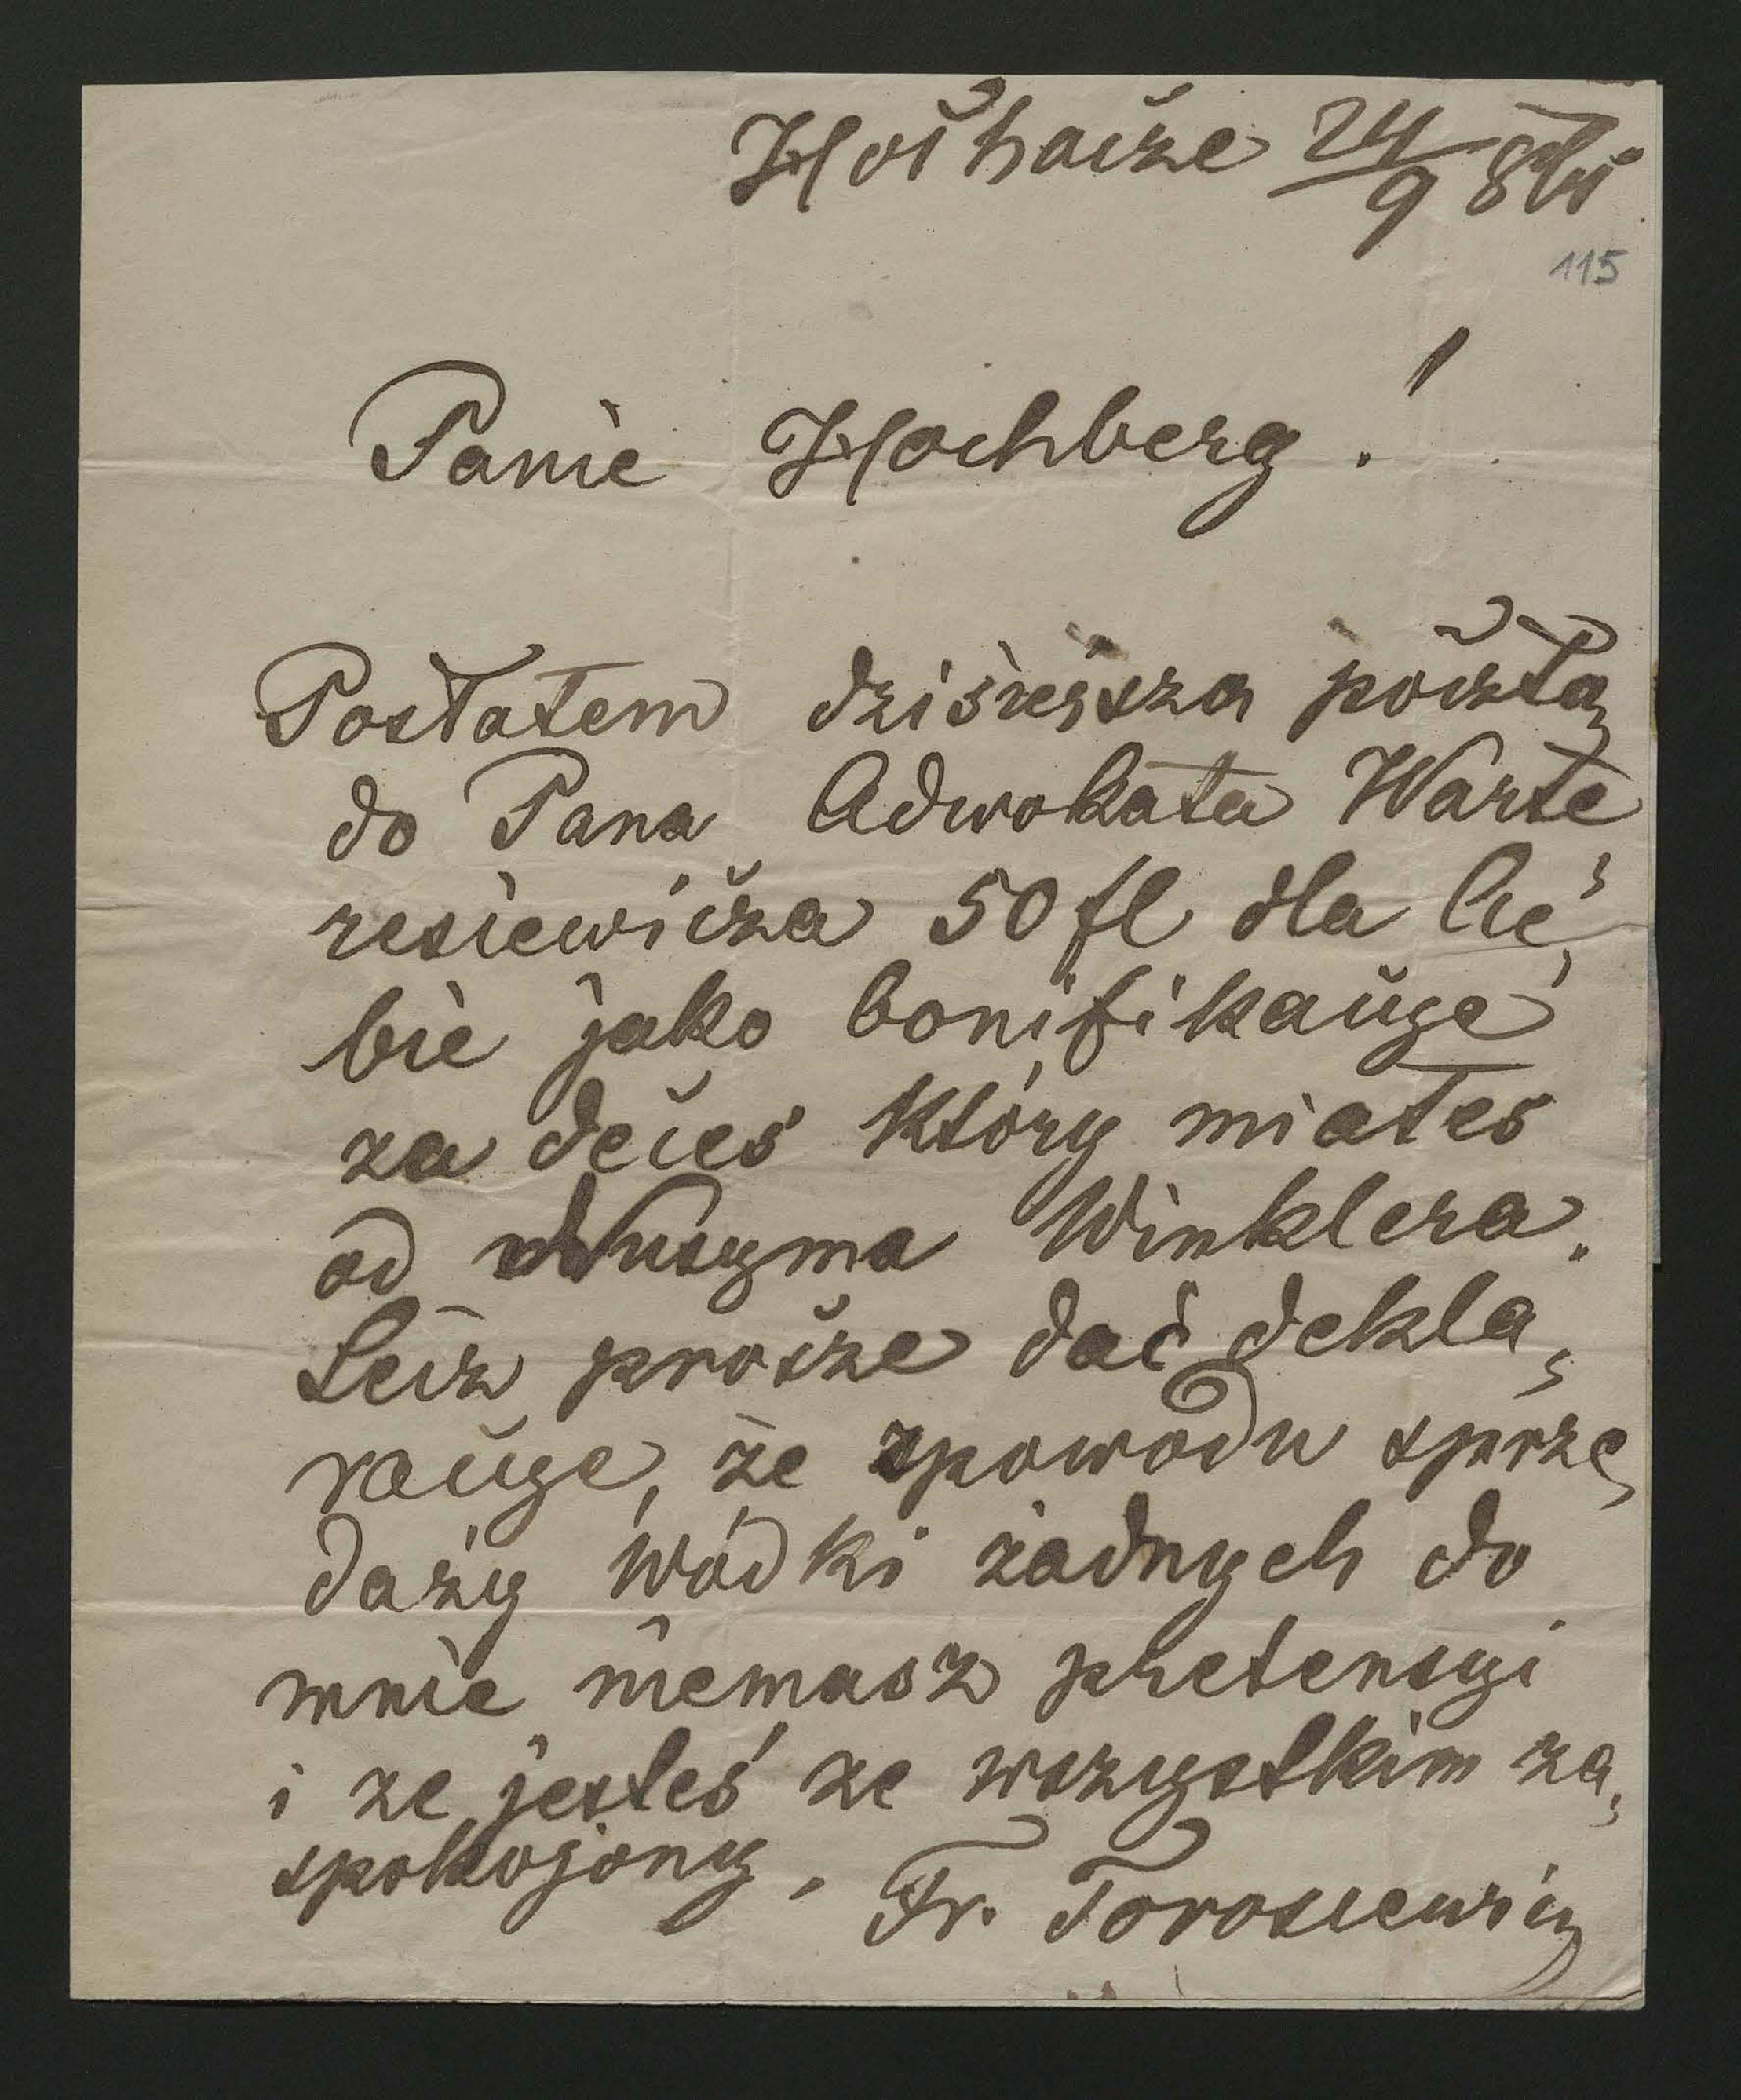 24/9
115
Panie Hochberg!
Posłałem dzisiejszą pocztą
do Pana Adwokata Warte
resiewicza 50 fl dla Cie„
bie jako bonifikacyę
za deces który miałeś
od Nusyma Winklera.
Lecz proszę dać dekla„
racyę, że zpowodu sprze„
daży wódki żadnych do
mnie niemasz pretensyi
i że jesteś ze wszystkim za„
spokojony. Fr. Torosiewicz